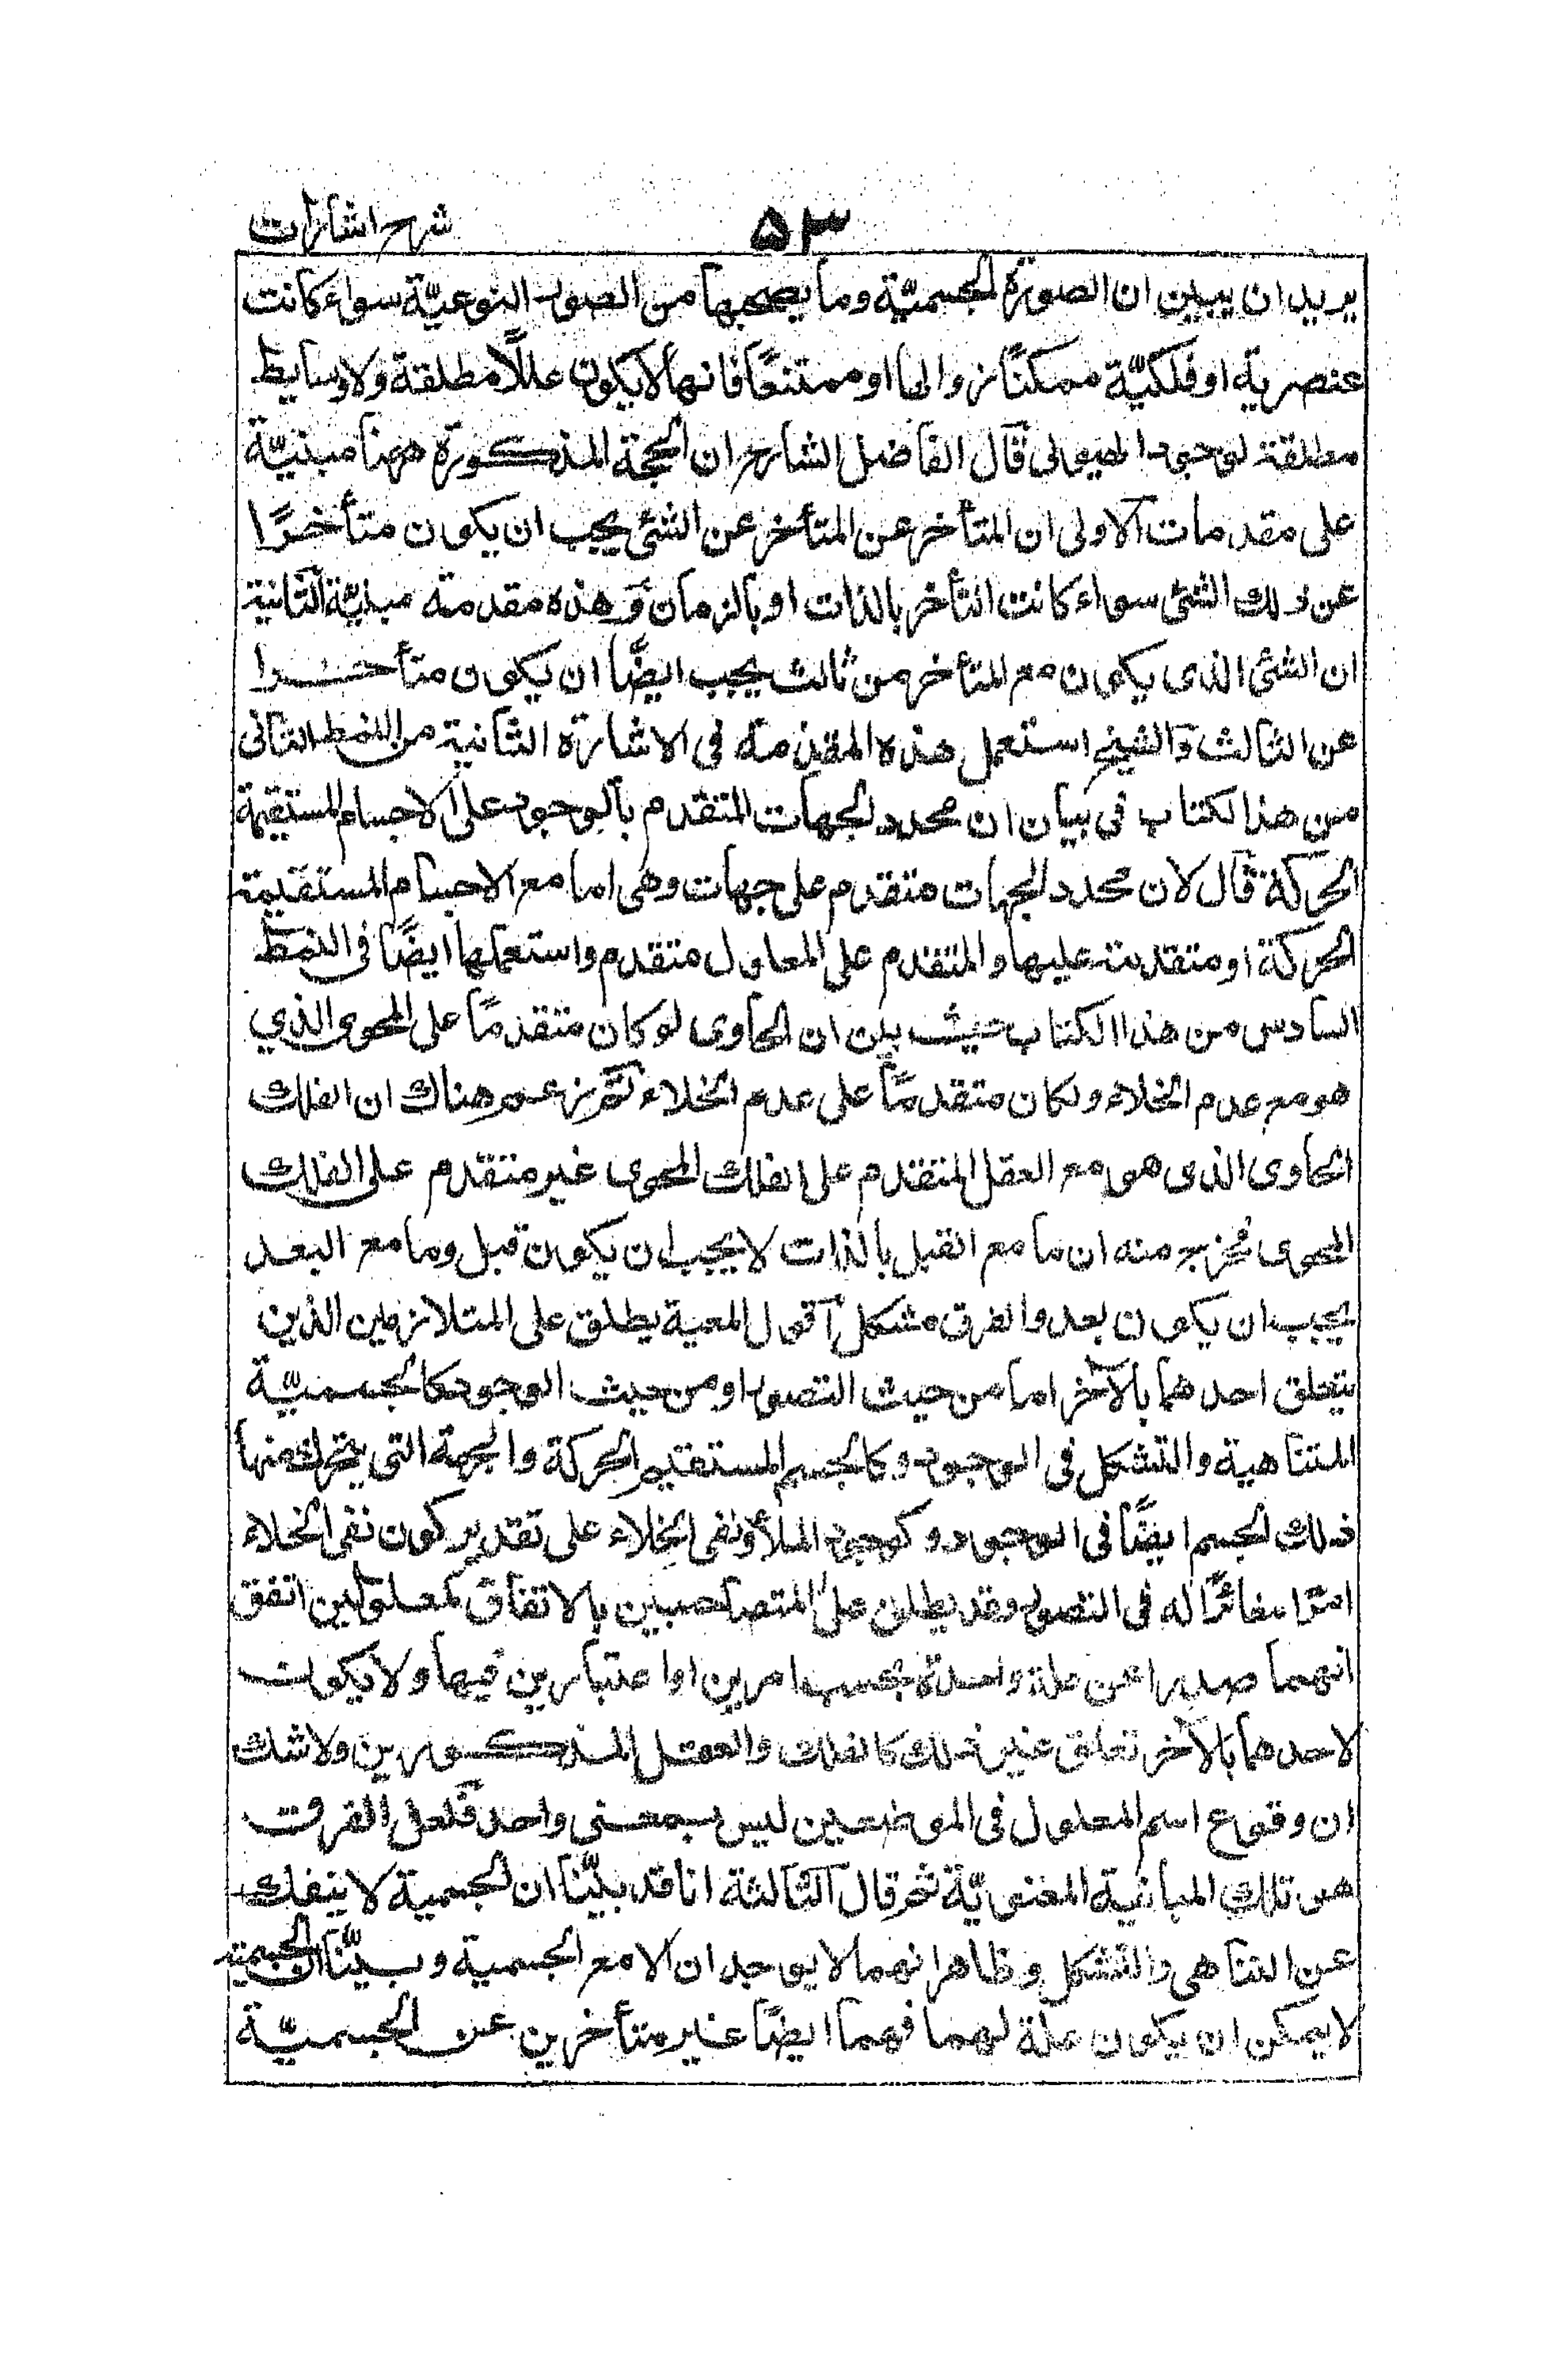 ۵۳
شرح اشارات
يريد ان يبين ان الصورة الجسميّة وما يصحبها من الصور النوعيّة سواء كانت
عنصرية او فلكيّة ممكنًا زوالها او ممتنعًا فانها لا يكون عللًا مطلقة ولا وسايط
مطلقة لوجود الهيولى قال الفاضل الشارح ان الحجة المذكورة ههنا مبنيّة
على مقدمات الاولى ان المتأخر عن المتأخر عن الشئ يجب ان يكون متأخرًا
عن ذلك الشئ سواء كانت التأخر بالذات او بالزمان وهذه مقدمة الثانية
ان الشئ الذى يكون مع المتأخر من ثالث يجب ايضًا ان يكون متأخرا
عن الثالث والشيخ استعمل هذه المقدمة فى الاشارة الثانية من النمط الثانى
من هذا الكتاب فى بيان ان محدد الجهات المتقدم بالوجود على الاجسام المستقيمة
الحركة قال لان محدد الجهات متقدم على جهات وهى اما مع الاجسام المستقيمة
الحركة او متقدمة عليها والمتقدم على المعاول متقدم واستعملها ايضًا فى النمط
السادس من هذا الكتاب حيث بين ان الحاوى لو كان متقدمًا على المحوى الذي
هو مع عدم الخلاء ولكان متقدمًا على عدم الخلاء ثم زعم هناك ان الفلك
الحاوى الذى هو مع العقل المتقدم على الفلك المحوى غير متقدم على الفلك
المحوى فخرج منه ان ما مع القبل بالذات لا يجب ان يكون قبل وما مع البعد
يجب ان يكون بعد والفرق مشكل اقول المعية يطلق على المتلازمين الذين
يتعلق احدهما بالآخر اما من حيث التصور او من حيث الوجود كالجسميّة
المتناهية والتشكل فى الوجود وكالجسم المستقيم الحركة والجهة التى يتحرك منها
ذلك الجسم ايضًا فى الوجود وكوجود الملأ ونفى الخلاء على تقدير كون نفى الخلاء
امرًا مغائرًا له فى التصور وقد يطلق على المتصاحبين بالاتفاق كمعلولين اتفق
انهما صدرا عن علة واحدة بحسب امرين او اعتبارين فيها ولا يكون
لاحدهما بالآخر تعلق غير ذلك كالفلك والعقل المذكورين ولا شك
ان وقوع اسم المعلول فى الموضعين ليس بمعنى واحد فلعل الفرق
هو تلك المباينة المعنويّة ثم قال الثالثة انا قد بيّنا ان الجسمية لا ينفك
عن التناهى والتشكل وظاهر انهما لا يوجدان الا مع الجسمية وبيّنا ان الجسمية
لا يمكن ان يكون علة لهما فهما ايضًا غير متأخرين عن الجسميّة